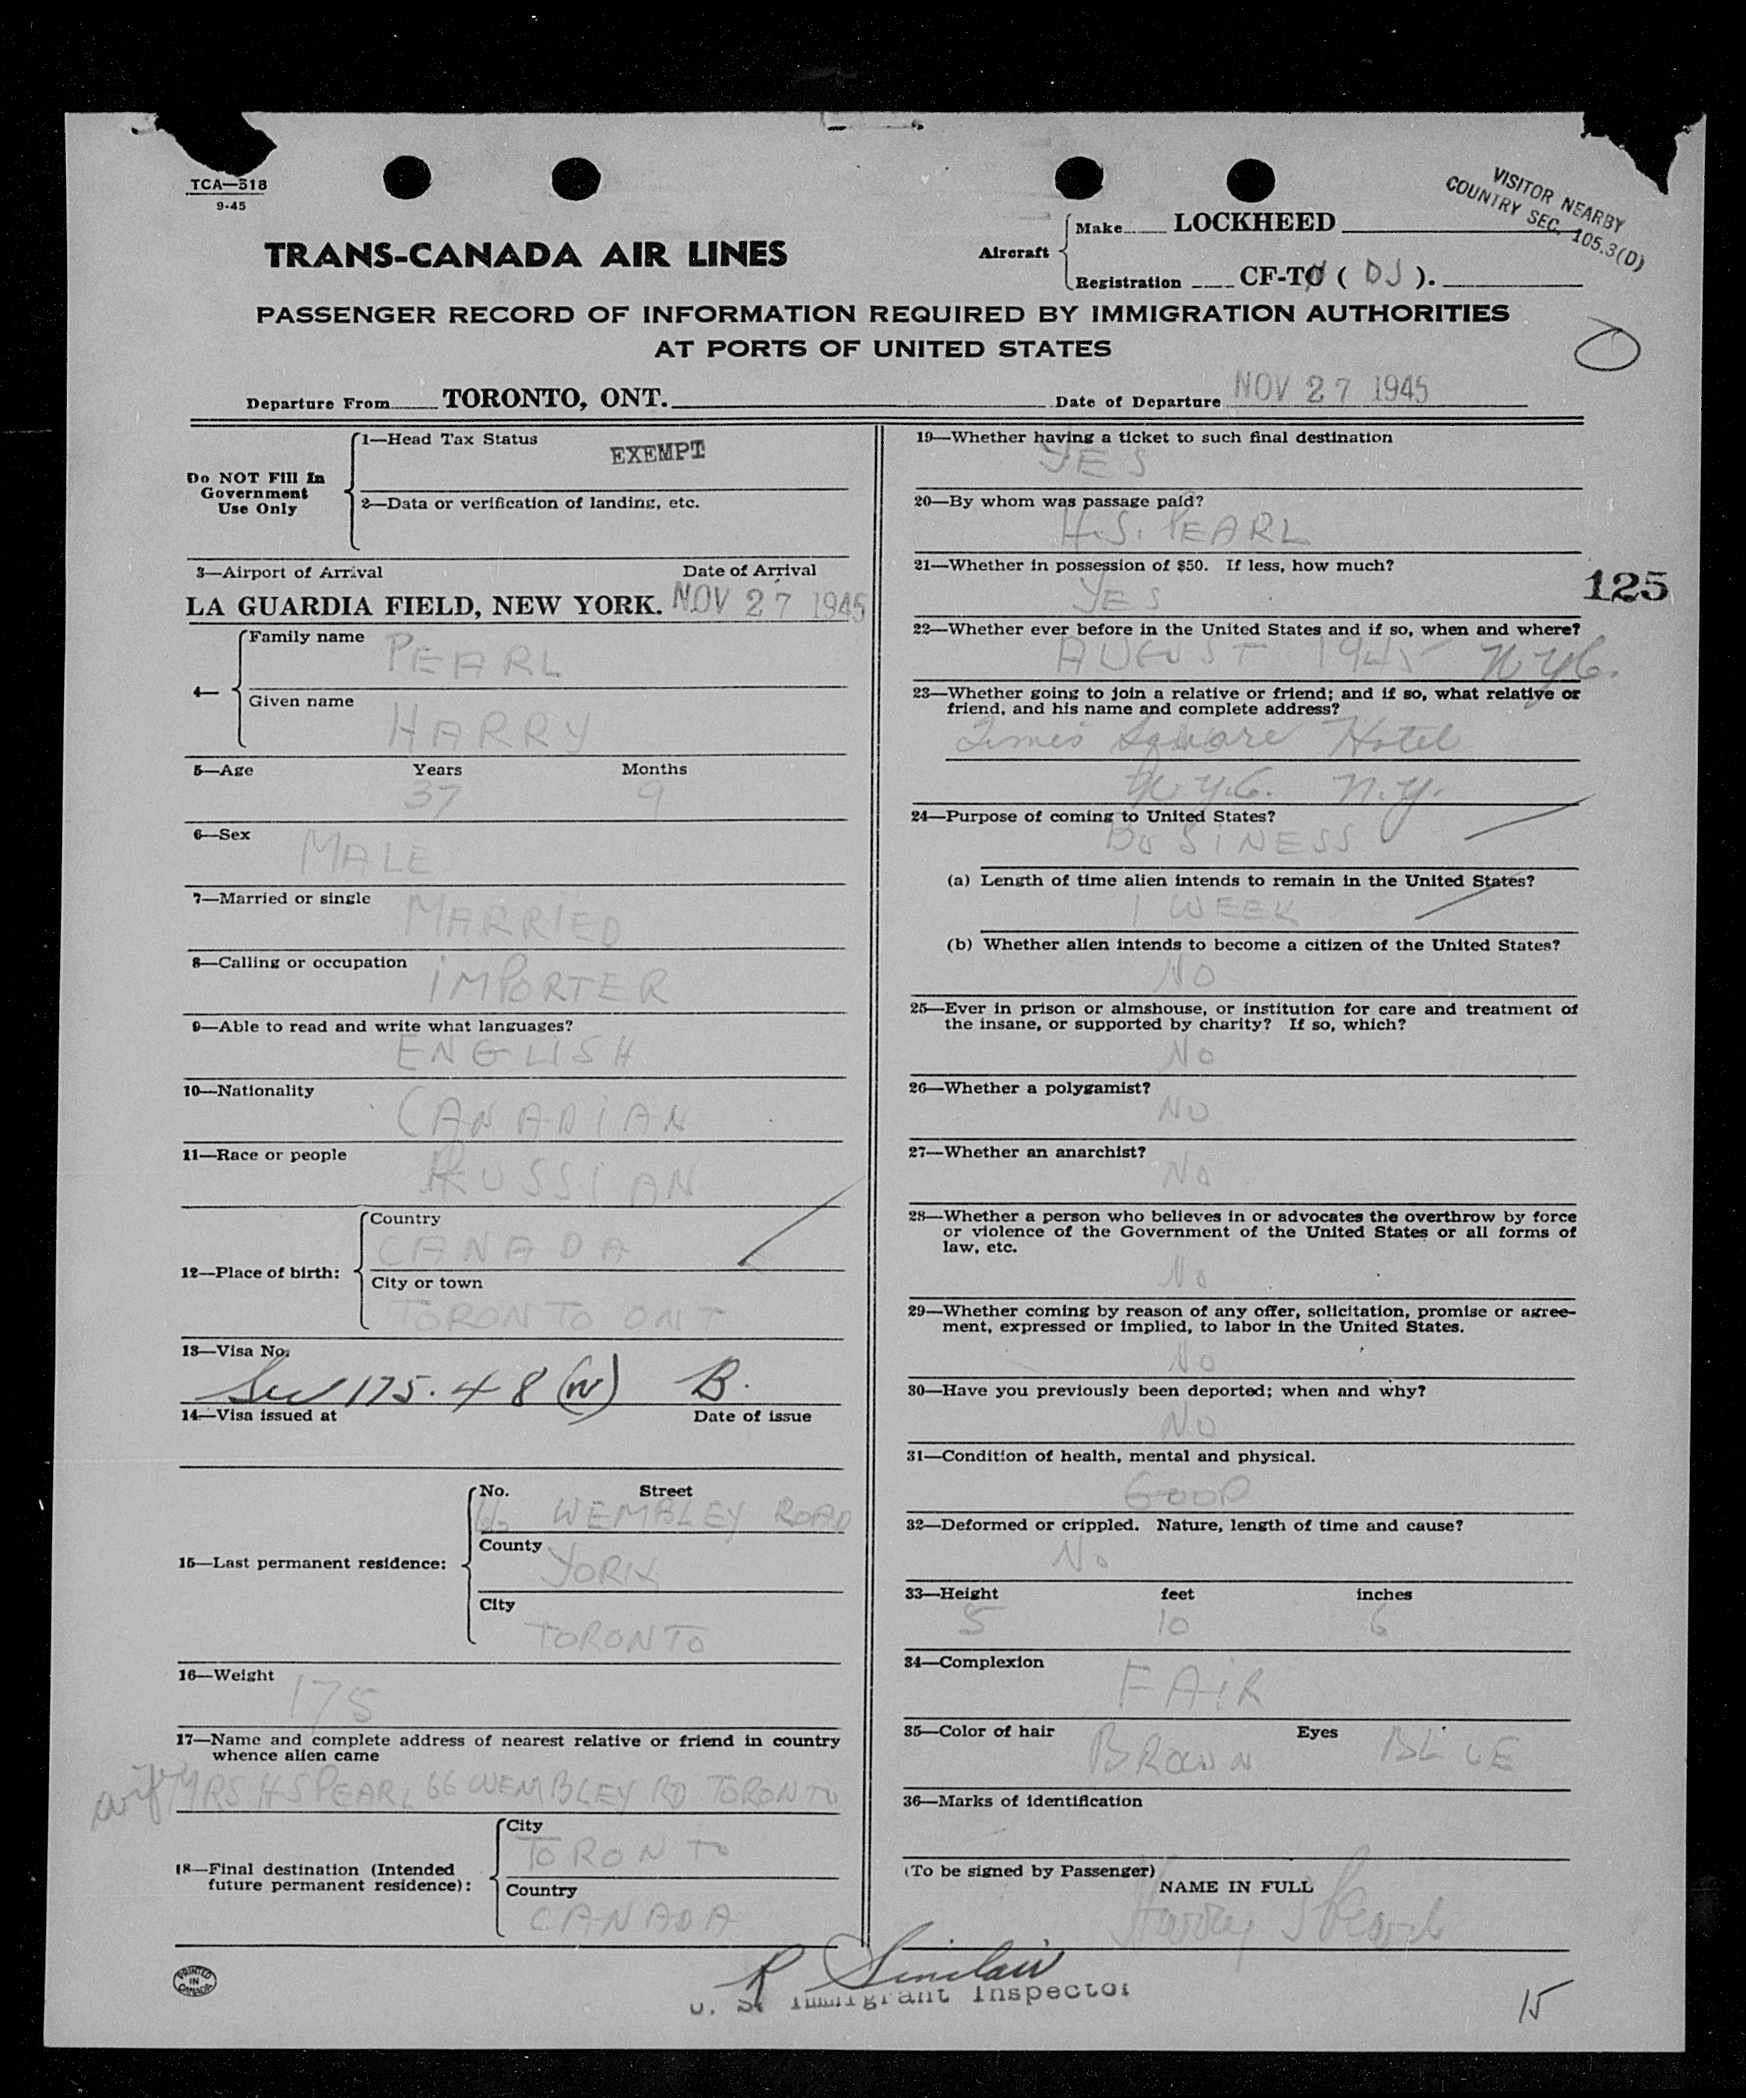 TCA—318
9-45
VISITOR NEARBY
COUNTRY SEC. 105.3(D)
TRANS-CANADA AIR LINES
Aircraft
Make LOCKHEED
Registration CF-T ( DJ ).
PASSENGER RECORD OF INFORMATION REQUIRED BY IMMIGRATION AUTHORITIES
AT PORTS OF UNITED STATES
Departure From TORONTO, ONT. Date of Departure NOV 27 1945
Do NOT Fill In
Government
Use Only
1—Head Tax Status EXEMPT
2—Data or verification of landing, etc.
3—Airport of Arrival Date of Arrival
LA GUARDIA FIELD, NEW YORK. NOV 27 1945
4—
Family name PEARL
Given name HARRY
5—Age Years Months
37 9
6—Sex
MALE
7—Married or single
MARRIED
8—Calling or occupation
IMPORTER
9—Able to read and write what languages?
ENGLISH
10—Nationality
CANADIAN
11—Race or people
RUSSIAN
12—Place of birth:
Country
CANADA
City or town
TORONTO ONT
13—Visa No.
Sec 175.48(W) B.
14—Visa issued at Date of issue
15—Last permanent residence:
No. Street
66 WEMBLEY ROAD
County
YORK
City
TORONTO
16—Weight
175
17—Name and complete address of nearest relative or friend in country
whence alien came
wife MRS H S PEARL 66 WEMBLEY RD TORONTO
18—Final destination (Intended
future permanent residence):
City
TORONTO
Country
CANADA
PRINTED
IN
CANADA
19—Whether having a ticket to such final destination
YES
20—By whom was passage paid?
H.S. PEARL
21—Whether in possession of $50. If less, how much?
YES
125
22—Whether ever before in the United States and if so, when and where?
AUGUST 1945 NYC.
23—Whether going to join a relative or friend; and if so, what relative or
friend, and his name and complete address?
Times Square Hotel
N.Y.C. N.Y.
24—Purpose of coming to United States?
BUSINESS
(a) Length of time alien intends to remain in the United States?
1 WEEK
(b) Whether alien intends to become a citizen of the United States?
NO
25—Ever in prison or almshouse, or institution for care and treatment of
the insane, or supported by charity? If so, which?
NO
26—Whether a polygamist?
NO
27—Whether an anarchist?
NO
28—Whether a person who believes in or advocates the overthrow by force
or violence of the Government of the United States or all forms of
law, etc.
NO
29—Whether coming by reason of any offer, solicitation, promise or agree-
ment, expressed or implied, to labor in the United States.
NO
30—Have you previously been deported; when and why?
NO
31—Condition of health, mental and physical.
GOOD
32—Deformed or crippled. Nature, length of time and cause?
NO
33—Height feet inches
5 10 6
34—Complexion
FAIR
35—Color of hair BROWN Eyes BLUE
36—Marks of identification
(To be signed by Passenger)
NAME IN FULL
Harry S Pearl
R Sinclair
U. S. Immigrant Inspector
15